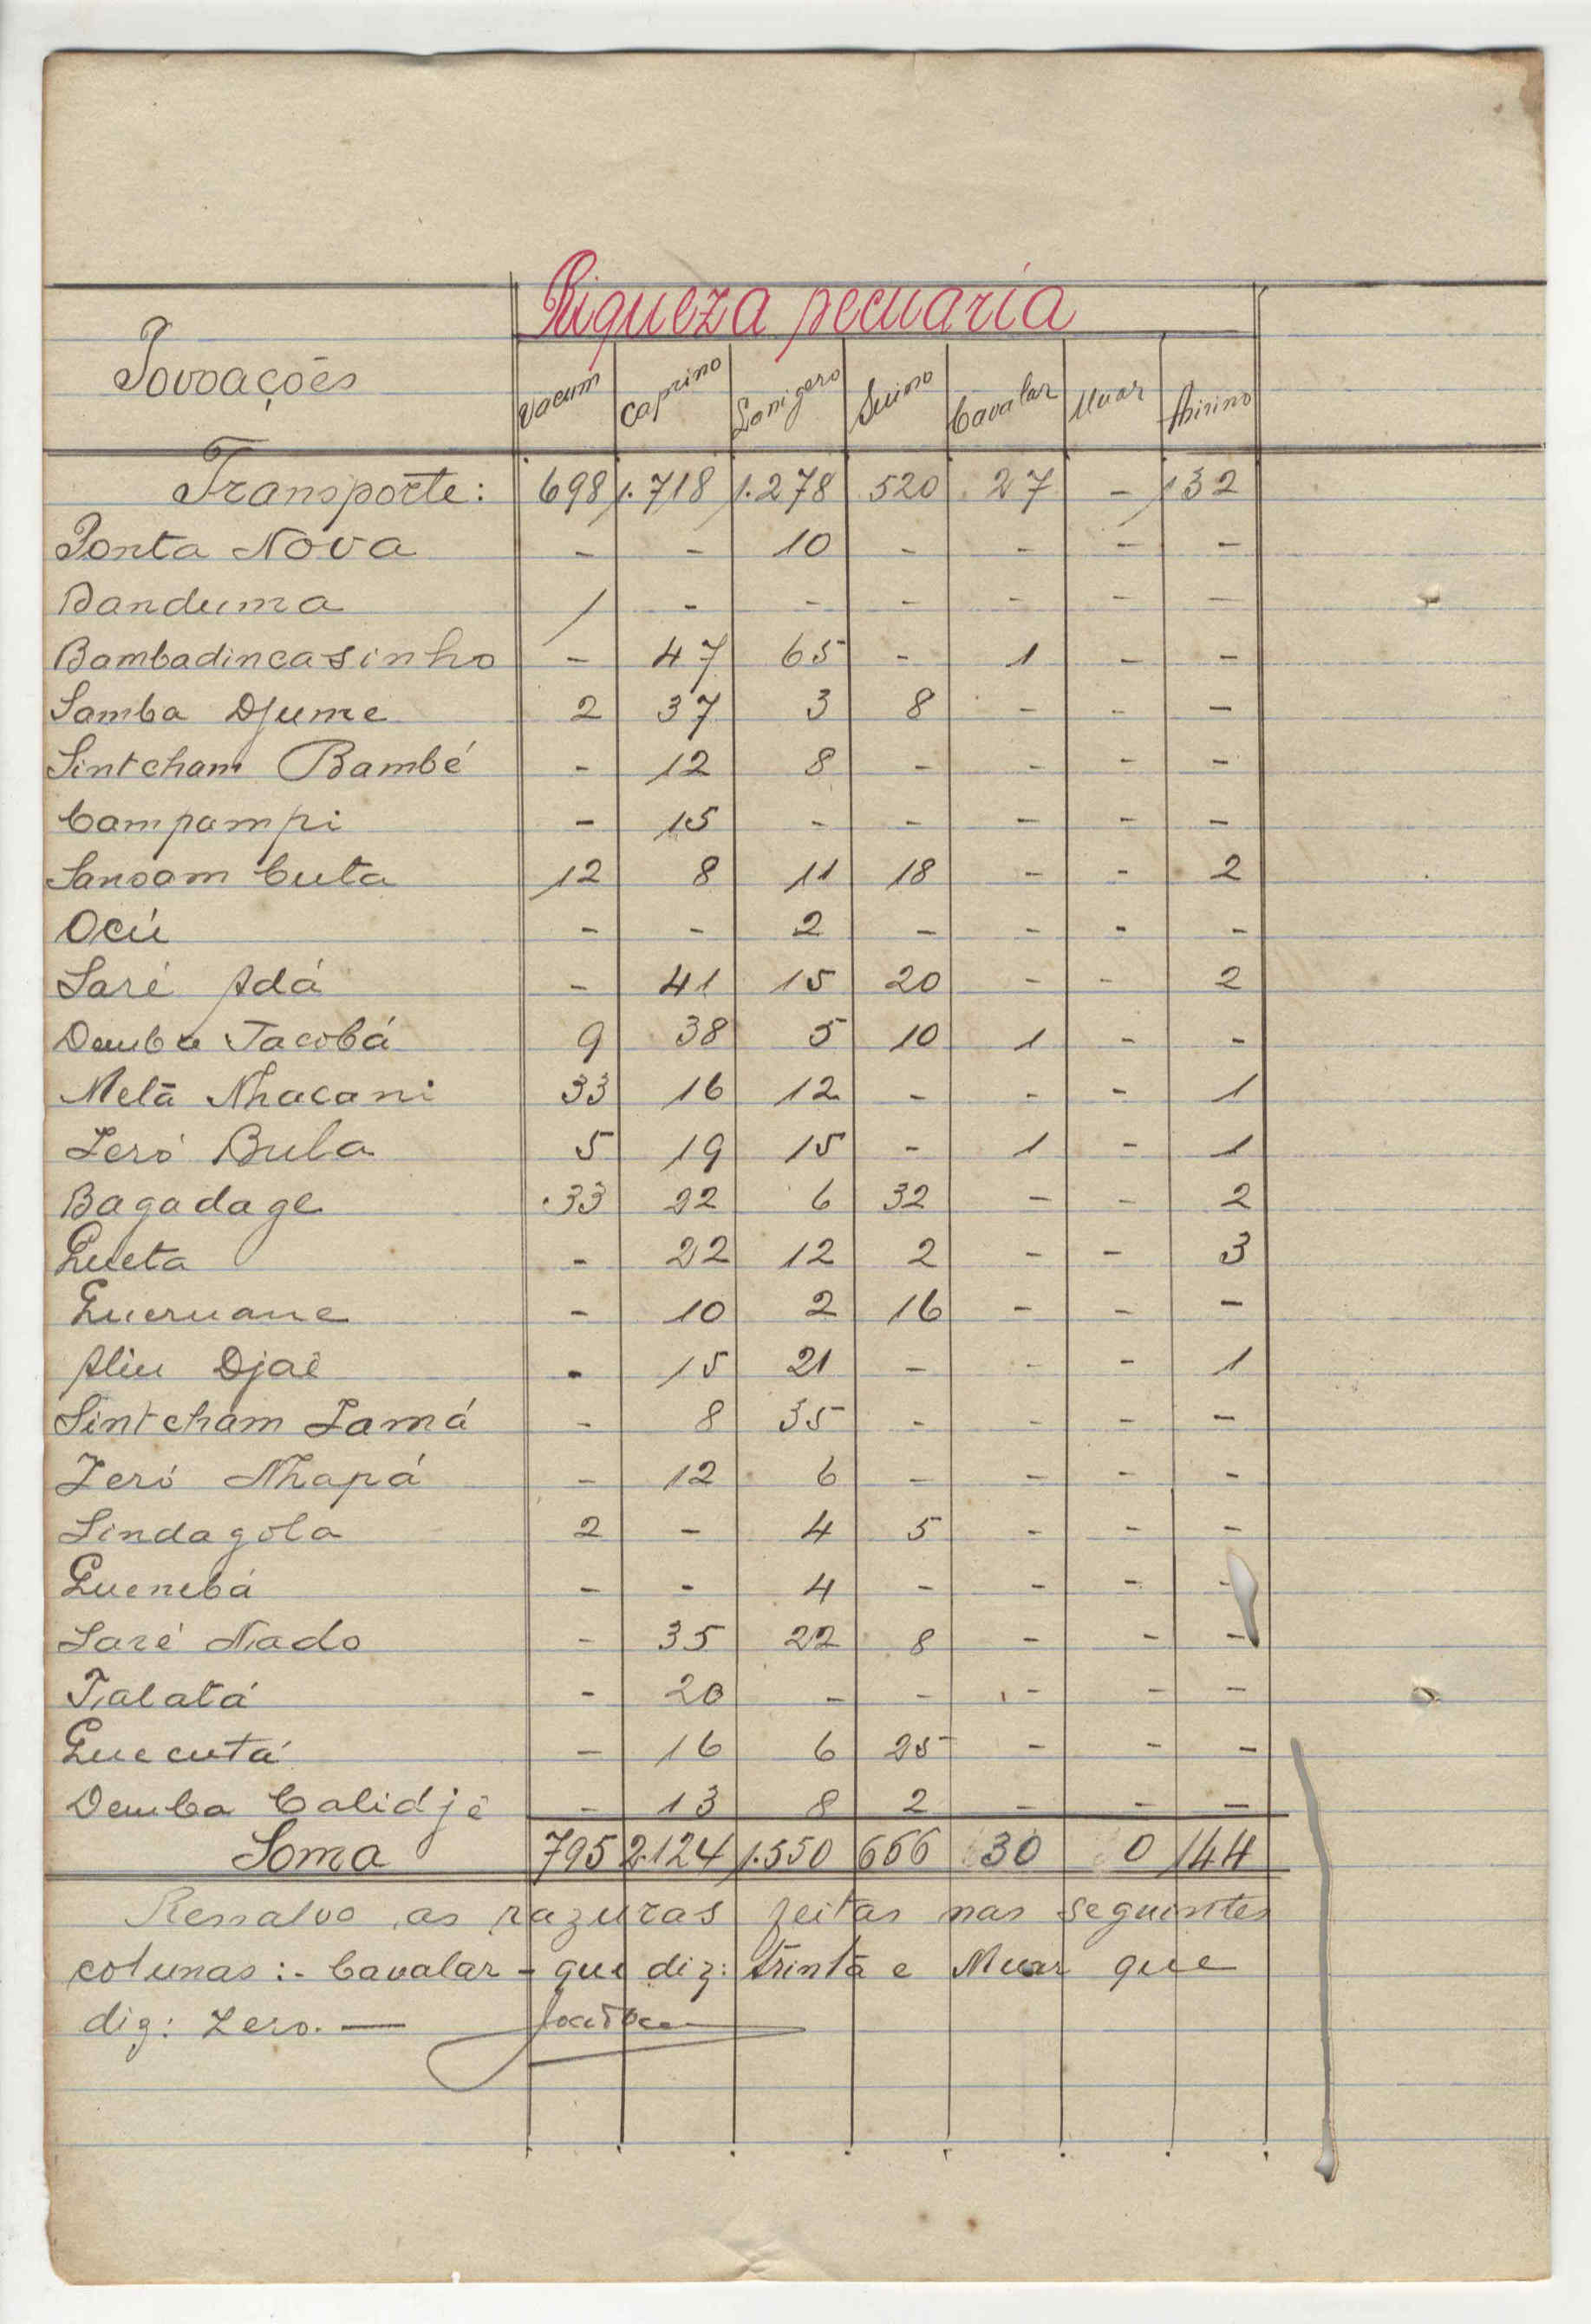 Riqueza pecuaria
Povoações Vacum Caprino Lanigero Suino Cavalar Muar Asinino
Transporte: 698 1.718 1.278 520 27 - 132
Ponta Nova - - 10 - - - -
Banduma 1 - - - - - -
Bambadincasinho - 47 65 - 1 - -
Samba Djume 2 37 3 8 - - -
Sintcham Bambé - 12 8 - - - -
Campampi - 15 - - - - -
Sansam Cuta 12 8 11 18 - - 2
Ocú - - 2 - - - -
Saré Adá - 41 15 20 - - 2
Demba Jacobá 9 38 5 10 1 - -
Melã Nhacani 33 16 12 - - - 1
Seró Bula 5 19 15 - 1 - 1
Bagadage 33 22 6 32 - - 2
Queta - 22 12 2 - - 3
Queruane - 10 2 16 - - -
Aliu Djaé - 15 21 - - - 1
Sintcham Lamá - 8 35 - - - -
Zeró Nhapá - 12 6 - - - -
Sindagola 2 - 4 5 - - -
Quenebá - - 4 - - - -
Saré Nado - 35 22 8 - - -
Talatá - 20 - - - - -
Quecutá - 16 6 25 - - -
Demba Calidjé - 13 8 2 - - -
Soma 795 2.124 1.550 666 30 0 144
Ressalvo as razuras feitas nas seguintes
colunas:- Cavalar - que diz: trinta e Muar que
diz: Zero. —